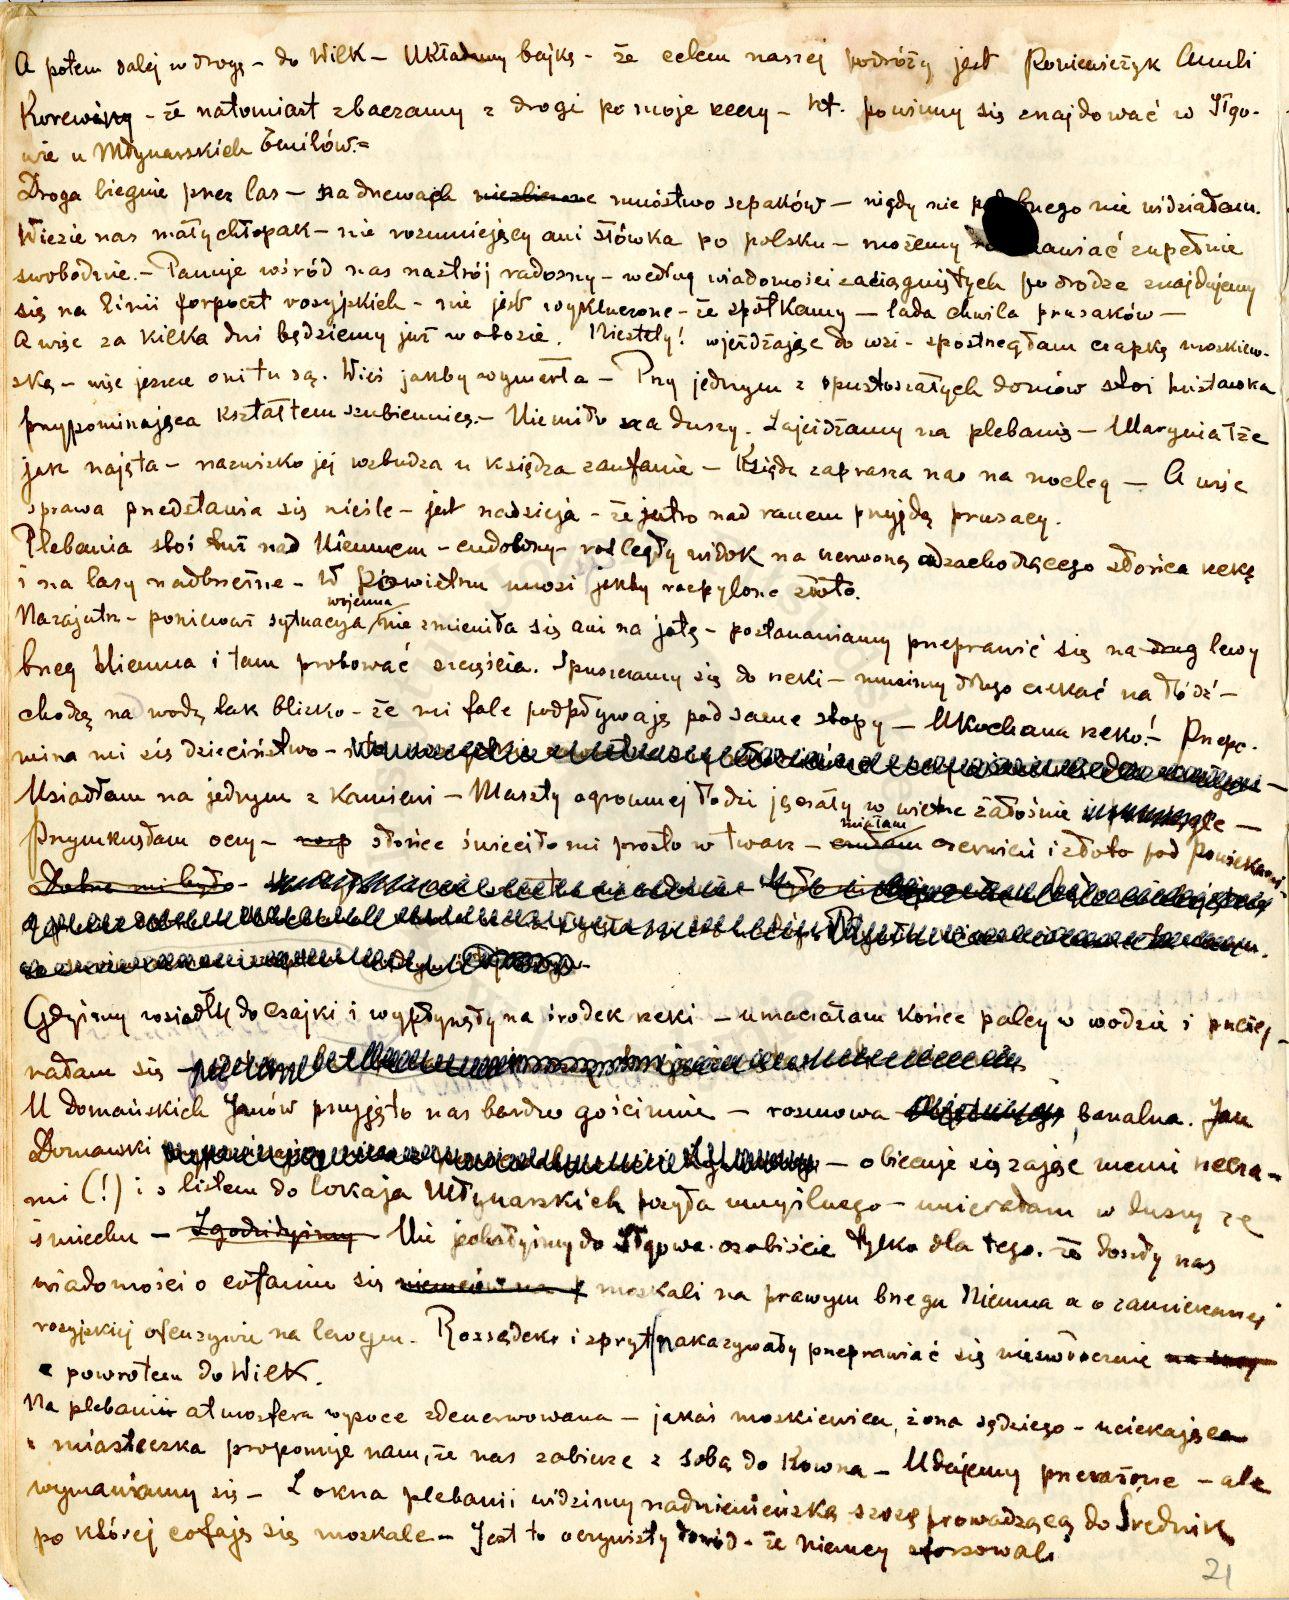 A potem dalej w drogę – do Wilk – Układamy bajkę – że celem naszej podróży jest Poniewieżyk Anuli
Korewiny – że natomiast zbaczamy z drogi po moje rzeczy – kt. powinny się znajdować w Iłgo-
wie u Młynarskich Emilów. =
Droga biegnie przez las – na drzewach niezliczone mnóstwo szpaków – nigdy nie podobnego nie widziałam.
Wiezie nas mały chłopak – nie rozumiejący ani słówka po polsku – możemy rozmawiać zupełnie
swobodnie. – Panuje wśród nas nastrój radosny – według wiadomości zaciągniętych po drodze znajdujemy
się na linii forpoczt rosyjskich – nie jest wykluczone – że spotkamy – lada chwila prusaków –
A więc za kilka dni będziemy już w obozie. Niestety! wjeżdżając do wsi – spostrzegłam czapkę moskiew-
ską – więc jeszcze oni tu są. Wieś jakby wymarła – Przy jednym z opustoszałych domów stoi huśtawka
przypominająca kształtem szubienicę. – Niemiło na duszy. Zajeżdżamy na plebanię – Marynia łże
jak najęta – nazwisko jej wzbudza u księdza zaufanie – Ksiądz zaprasza nas na nocleg – A więc
sprawa przedstawia się nieźle – jest nadzieja – że jutro nad ranem przyjdą prusacy.
Plebania stoi tuż nad Niemnem – cudowny – rozległy widok na czerwoną od zachodzącego słońca rzekę
i na lasy nadbrzeżne – W powietrzu unosi jakby rozpylone złoto.
wojenna
Nazajutrz – ponieważ sytuacja nie zmieniła się ani na jotę – postanawiamy przeprawić się na drug lewy
brzeg Niemna i tam probować szczęścia. Spuszczamy się do rzeki – musimy długo czekać na łódź –
chodzę nad wodą tak blizko – że mi fale podpływają pod same stopy – Ukochana rzeko! – Przypo-
mina mi się dzieciństwo –
Usiadłam na jednym z kamieni – Maszty ogromnej łodzi jęczały w wietrze żałośnie –
miałam
Przymknęłam oczy – słońce świeciło mi prosto w twarz – czułam czerwień i złoto pod powiekami
Dobrze mi było –
Gdyśmy wsiadły do czajki i wypłynęły na środek rzeki – umaczałam końce palcy w wodzie i przeże-
gnałam się
U Domańskich Janów przyjęto nas bardzo gościnnie – rozmowa banalna. Jan
Domański – obiecuje się zająć memi rzecza-
mi (!) i z listem do lokaja Młynarskich posyła umyślnego – umierałam w duszy ze
śmiechu – Zgodziłyśmy – Nie jechałyśmy do Iłgowa osobiście tylko dla tego – że doszły nas
wiadomości o cofaniu się niemców na moskali na prawym brzegu Niemna a o zamierzonej
rosyjskiej ofenzywie na lewym. Rozsądek i spryt nakazywały przeprawiać się niezwłocznie
z powrotem do Wilk.
Na plebanii atmosfera wysoce zdenerwowana – jakaś moskiewka, żona sędziego – uciekająca
z miasteczka proponuje nam, że nas zabierze z sobą do Kowna – Udajemy przerażone – ale
wymawiamy się – Z okna plebanii widzimy nadniemieńską szosę prowadzącą do Średnik
po której cofają się moskale – Jest to oczywisty dowód – że niemcy sforsowali
21